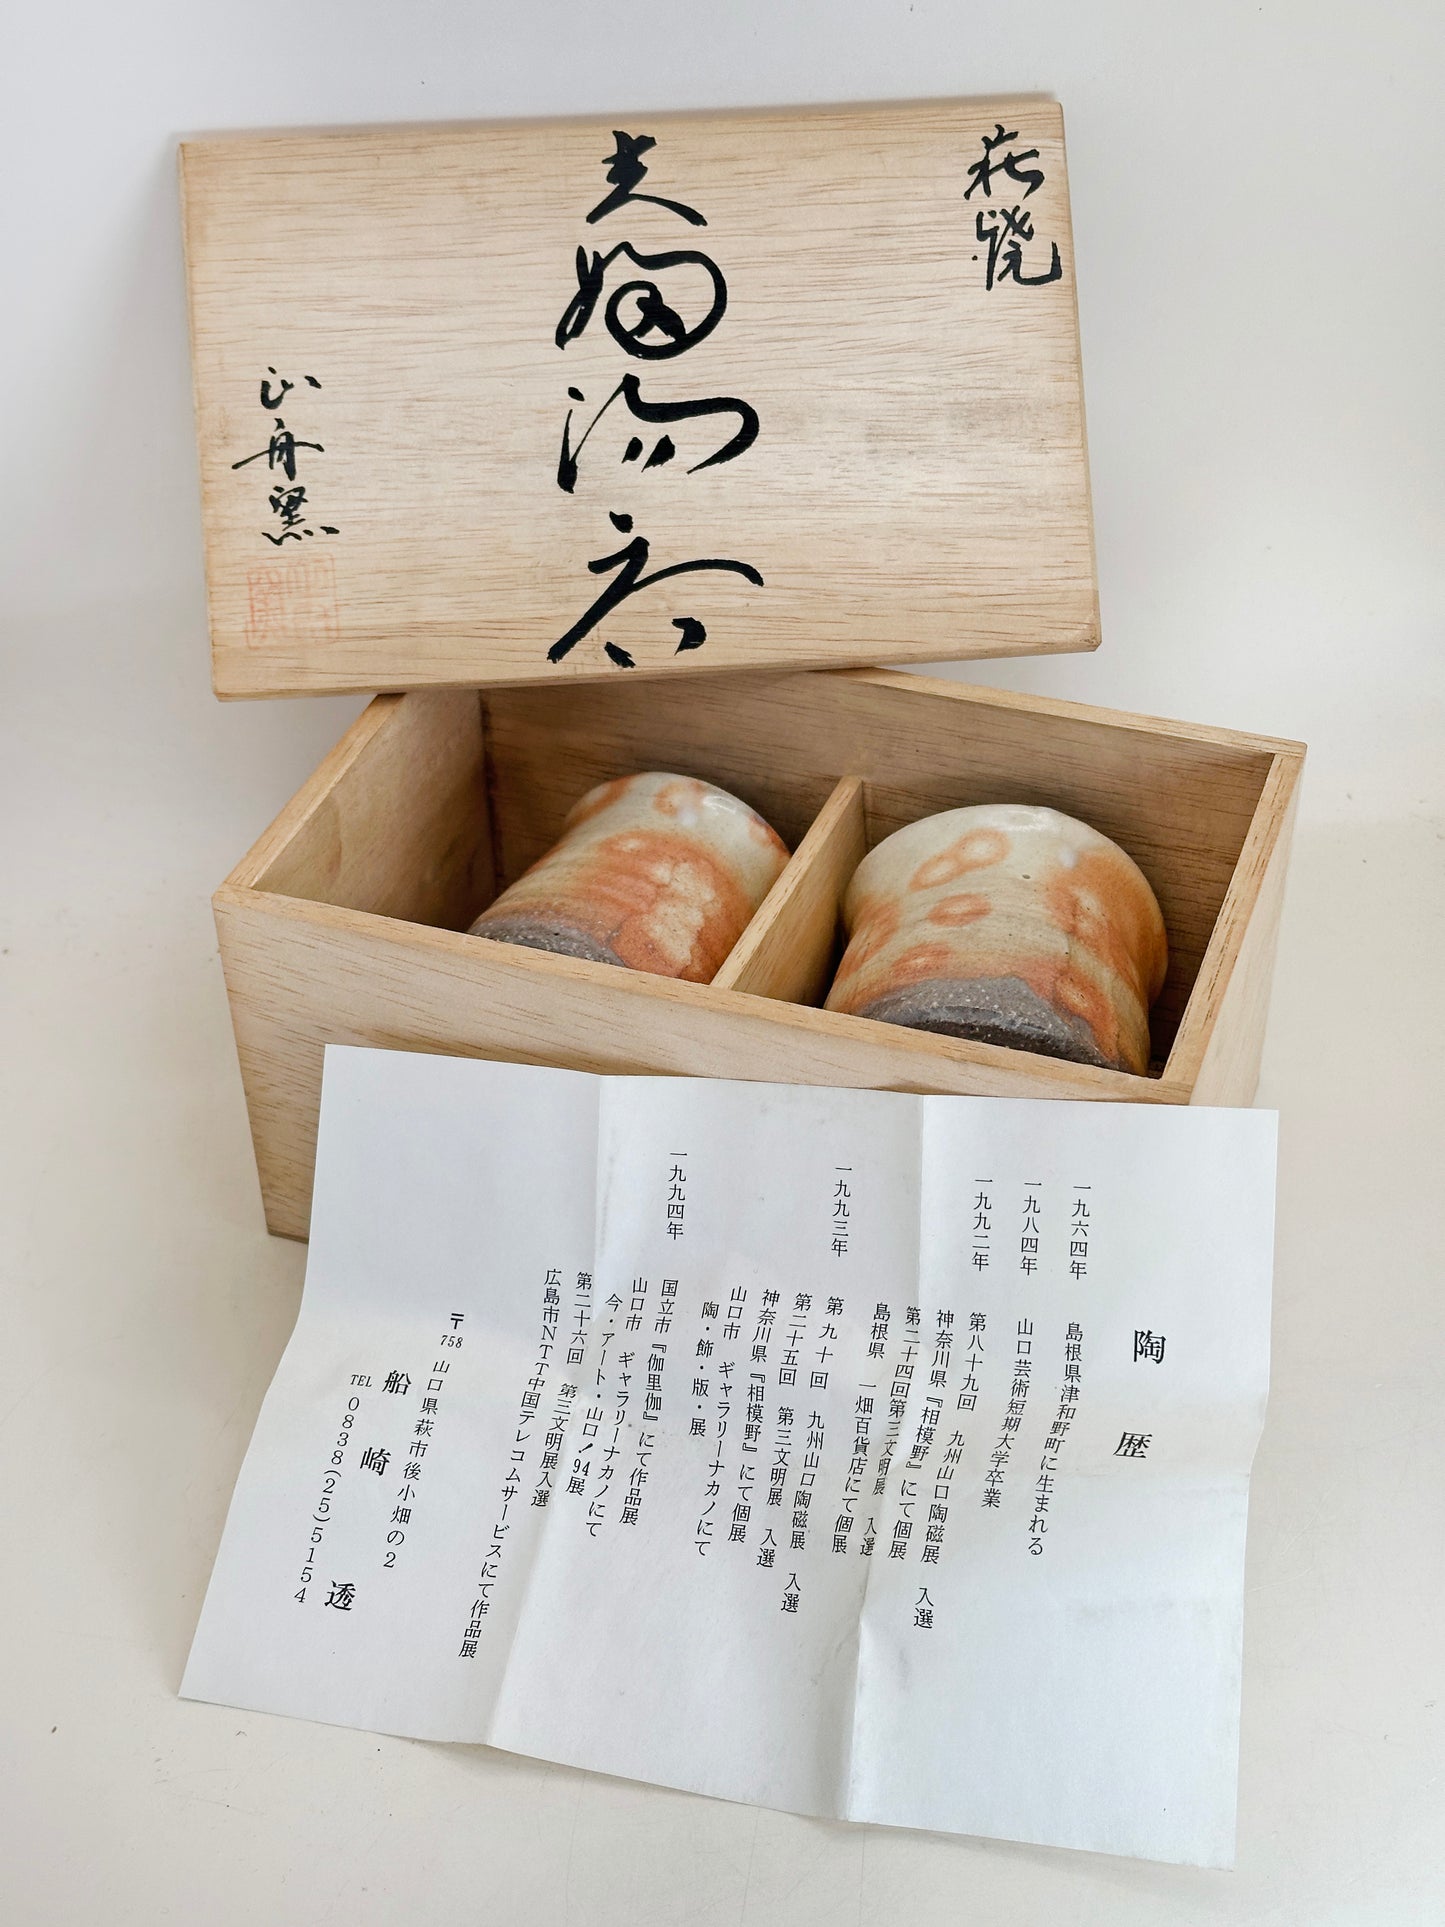 萩焼
夫婦湯呑
山舟窯
陶歴
一九六四年 島根県津和野町に生まれる
一九八四年 山口芸術短期大学卒業
一九九二年 第八十九回 九州山口陶磁展 入選
神奈川県『相模野』にて個展
第二十四回第三文明展 入選
島根県 一畑百貨店にて個展
一九九三年 第九十回 九州山口陶磁展 入選
第二十五回 第三文明展 入選
神奈川県『相模野』にて個展
山口市 ギャラリーナカノにて
陶・飾・版・展
一九九四年 国立市『伽里伽』にて作品展
山口市 ギャラリーナカノにて
今・アート・山口!94展
第二十六回 第三文明展入選
広島市NTT中国テレコムサービスにて作品展
〒758 山口県萩市後小畑の2
船崎透
TEL 0838(25)5154